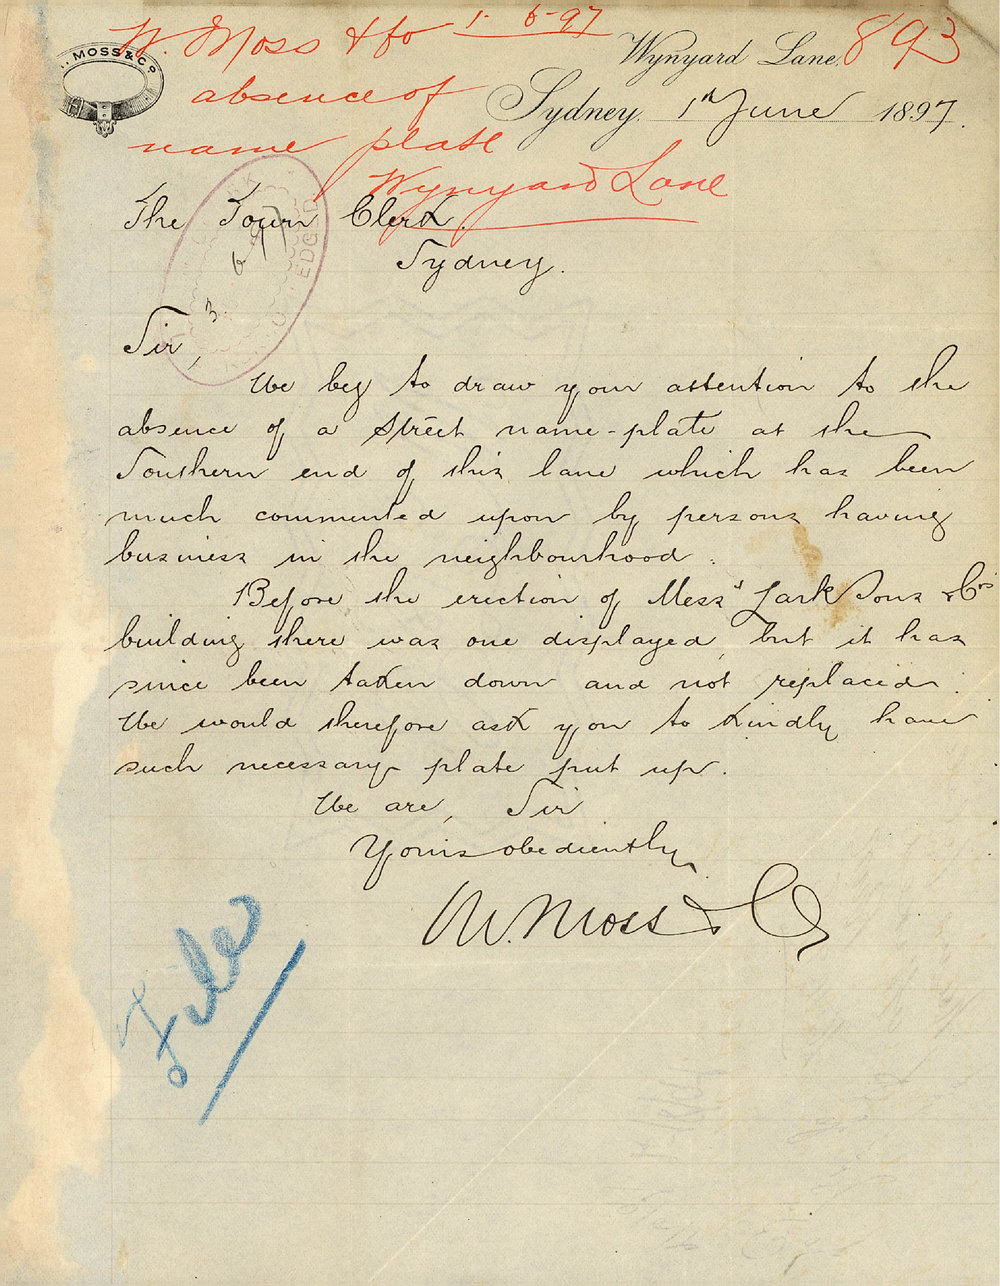 W. Moss & Co 1-6-97
absence of
name plate
Wynyard Lane
893
MOSS & Co
Wynyard Lane,
Sydney, 1st June 1897.
3. 6 97
The Town Clerk.
Sydney.
Sir,
We beg to draw your attention to the
absence of a Street name-plate at the
Southern end of this lane which has been
much commented upon by persons having
business in the neighbourhood.
Before the erection of Messrs Lark Sons & Cos
building there was one displayed, but it has
since been taken down and not replaced.
We would therefore ask you to kindly have
such necessary plate put up.
We are, Sir
Yours obediently
W. Moss & Co
File